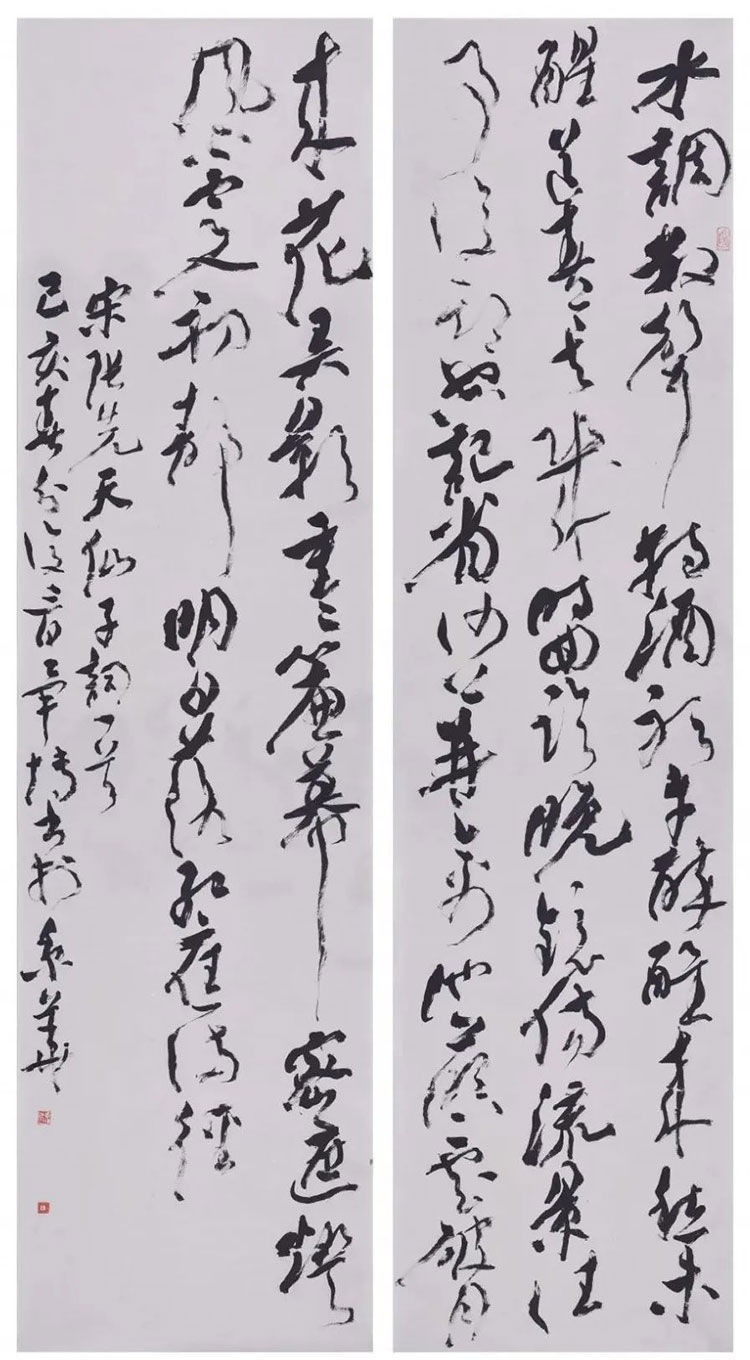 水調數聲持酒聽午醉醒來愁未
醒送春々去幾時回臨晚鏡傷流景往
事後期空記省沙上並禽池上暝雲破月
來花弄影重々簾幕密遮燈
風不定人初靜明日落紅應滿徑
宋張先天仙子詞一首
己亥春分後 書於